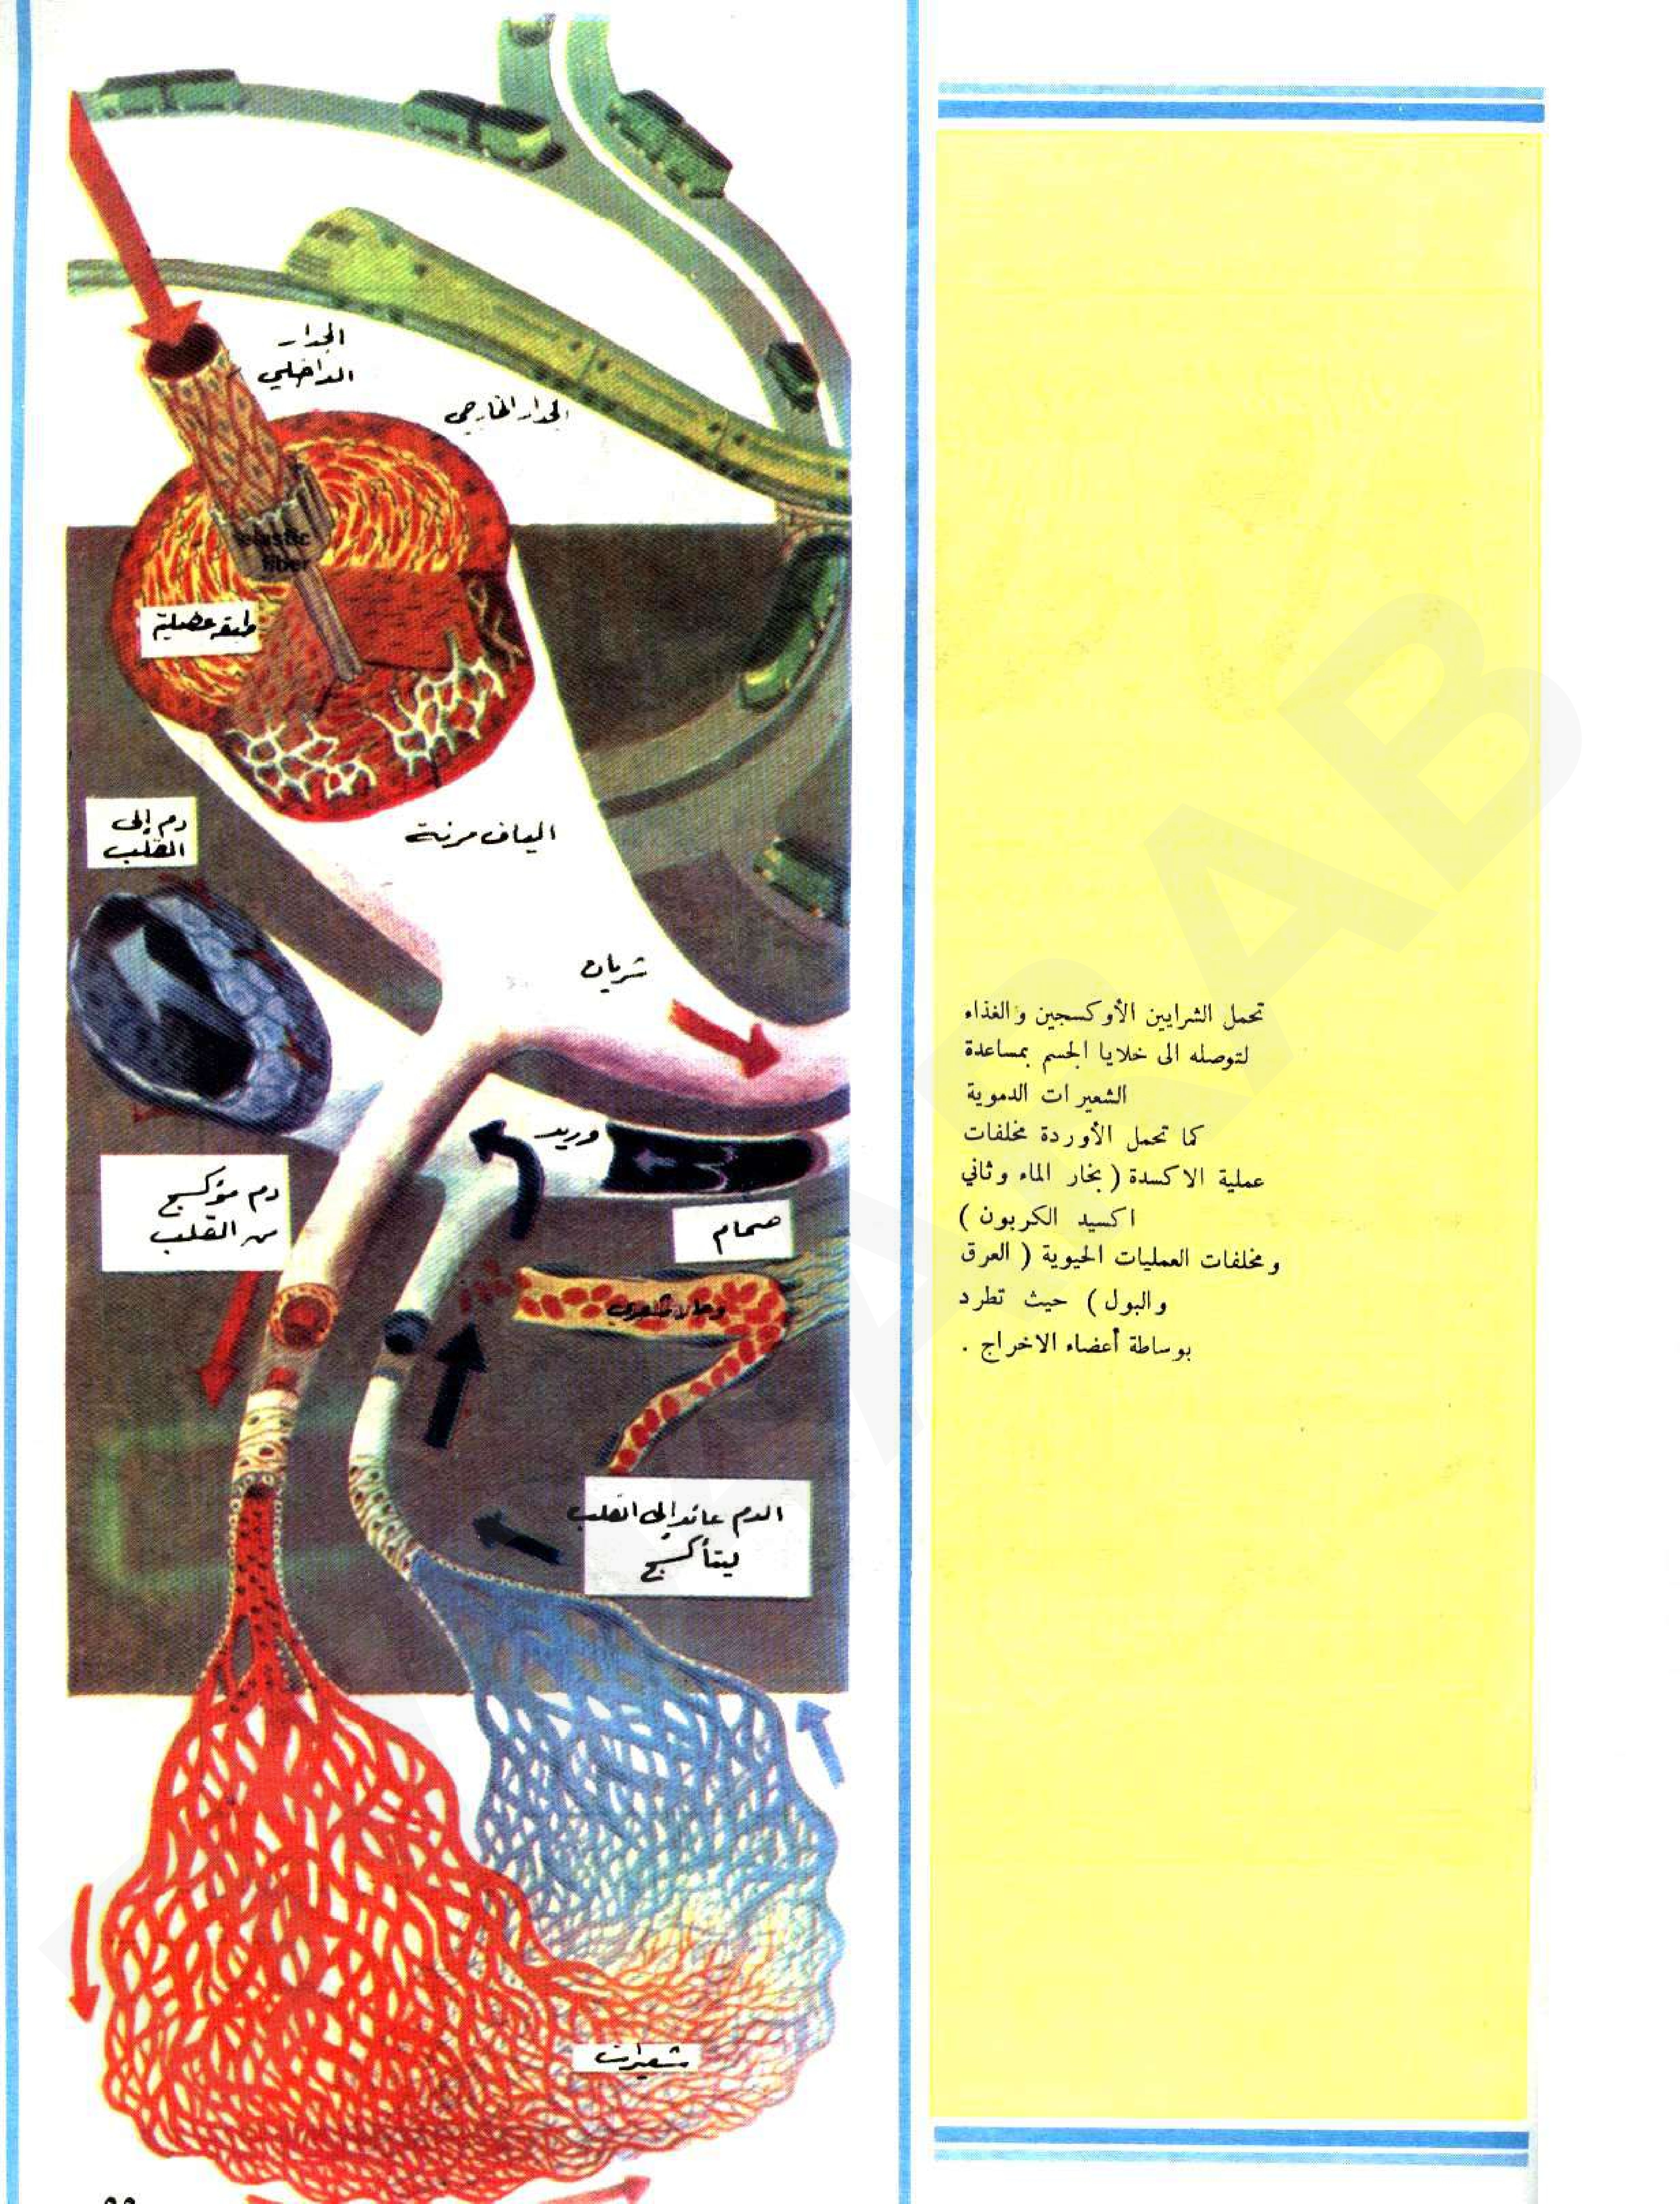 الجدار
الداخلي
الجدار الخارجي
elastic
fiber
طبقة عضلية
دم إلى
القلب
الياف مرنة
شريان
وريد
دم مؤكسج
من القلب
صمام
وعاء شعري
الدم عائد إلى القلب
ليتأكسج
شعيرات
تحمل الشرايين الأوكسجين والغذاء
لتوصله الى خلايا الجسم بمساعدة
الشعيرات الدموية
كما تحمل الأوردة مخلفات
عملية الاكسدة ( بخار الماء وثاني
اكسيد الكربون )
ومخلفات العمليات الحيوية ( العرق
والبول ) حيث تطرد
بوساطة أعضاء الاخراج .